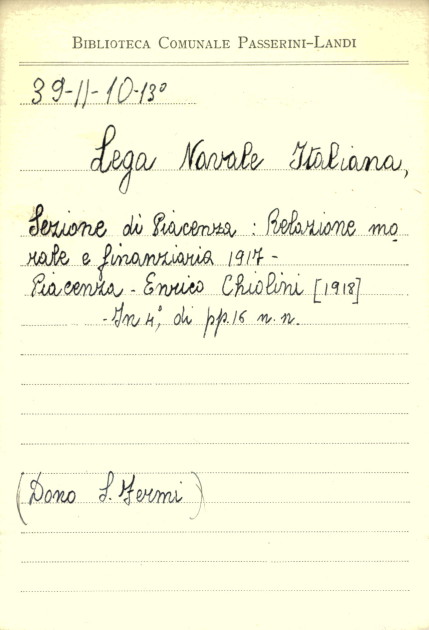 BIBLIOTECA COMUNALE PASSERINI-LANDI
39-11-10-13°
Lega Navale Italiana,
Sezione di Piacenza : Relazione mo
rale e finanziaria 1917 -
Piacenza - Enrico Chiolini [1918]
- In 4°, di pp. 16 n. n.
(Dono S. Fermi)